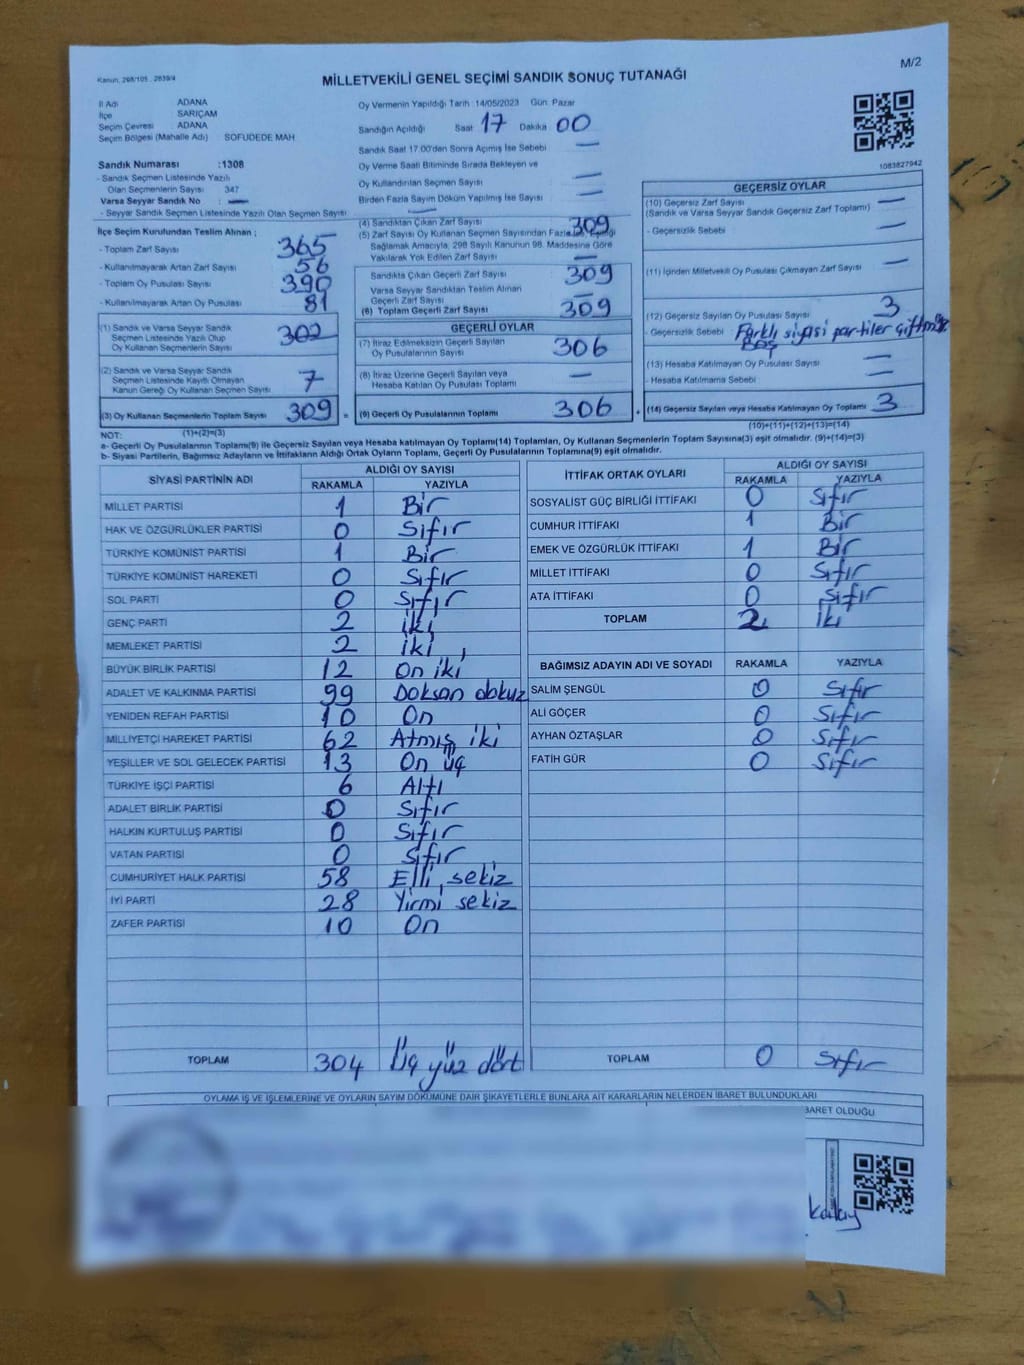 Kanun, 298/105 , 2839/4
M/2
MİLLETVEKİLİ GENEL SEÇİMİ SANDIK SONUÇ TUTANAĞI
İl Adı ADANA
İlçe SARIÇAM
Seçim Çevresi ADANA
Seçim Bölgesi (Mahalle Adı) SOFUDEDE MAH
Sandık Numarası :1308
- Sandık Seçmen Listesinde Yazılı
Olan Seçmenlerin Sayısı 347
Varsa Seyyar Sandık No : —
- Seyyar Sandık Seçmen Listesinde Yazılı Olan Seçmen Sayısı
Oy Vermenin Yapıldığı Tarih :14/05/2023 Gün: Pazar
Sandığın Açıldığı Saat 17 Dakika 00
Sandık Saat 17.00'den Sonra Açmış İse Sebebi —
Oy Verme Saati Bitiminde Sırada Bekleyen ve
Oy Kullandırılan Seçmen Sayısı —
Birden Fazla Sayım Döküm Yapılmış İse Sayısı —
1083827942
İlçe Seçim Kurulundan Teslim Alınan ;
- Toplam Zarf Sayısı 365
- Kullanılmayarak Artan Zarf Sayısı 56
- Toplam Oy Pusulası Sayısı 390
- Kullanılmayarak Artan Oy Pusulası 81
(1) Sandık ve Varsa Seyyar Sandık
Seçmen Listesinde Yazılı Olup
Oy Kullanan Seçmenlerin Sayısı 302
(2) Sandık ve Varsa Seyyar Sandık
Seçmen Listesinde Kayıtlı Olmayan
Kanun Gereği Oy Kullanan Seçmen Sayısı 7
(3) Oy Kullanan Seçmenlerin Toplam Sayısı 309 =
(4) Sandıktan Çıkan Zarf Sayısı 309
(5) Zarf Sayısı Oy Kullanan Seçmen Sayısından Fazla İse, Eşitliği
Sağlamak Amacıyla, 298 Sayılı Kanunun 98. Maddesine Göre
Yakılarak Yok Edilen Zarf Sayısı —
Sandıkta Çıkan Geçerli Zarf Sayısı 309
Varsa Seyyar Sandıktan Teslim Alınan
Geçerli Zarf Sayısı —
(6) Toplam Geçerli Zarf Sayısı 309
GEÇERLİ OYLAR
(7) İtiraz Edilmeksizin Geçerli Sayılan
Oy Pusulalarının Sayısı 306
(8) İtiraz Üzerine Geçerli Sayılan veya
Hesaba Katılan Oy Pusulası Toplamı —
(9) Geçerli Oy Pusulalarının Toplamı 306 +
GEÇERSİZ OYLAR
(10) Geçersiz Zarf Sayısı —
(Sandık ve Varsa Seyyar Sandık Geçersiz Zarf Toplamı)
- Geçersizlik Sebebi —
(11) İçinden Milletvekili Oy Pusulası Çıkmayan Zarf Sayısı —
(12) Geçersiz Sayılan Oy Pusulası Sayısı 3
- Geçersizlik Sebebi : Farklı siyasi partiler
Boş
(13) Hesaba Katılmayan Oy Pusulası Sayısı —
- Hesaba Katılmama Sebebi —
(14) Geçersiz Sayılan veya Hesaba Katılmayan Oy Toplamı 3
(1)+(2)=(3)
(10)+(11)+(12)+(13)=(14)
NOT:
a- Geçerli Oy Pusulalarının Toplamı(9) ile Geçersiz Sayılan veya Hesaba katılmayan Oy Toplamı(14) Toplamları, Oy Kullanan Seçmenlerin Toplam Sayısına(3) eşit olmalıdır. (9)+(14)=(3)
b- Siyasi Partilerin, Bağımsız Adayların ve İttifakların Aldığı Ortak Oyların Toplamı, Geçerli Oy Pusulalarının Toplamına(9) eşit olmalıdır.
SİYASİ PARTİNİN ADI ALDIĞI OY SAYISI
RAKAMLA YAZIYLA
MİLLET PARTİSİ 1 Bir
HAK VE ÖZGÜRLÜKLER PARTİSİ 0 Sıfır
TÜRKİYE KOMÜNİST PARTİSİ 1 Bir
TÜRKİYE KOMÜNİST HAREKETİ 0 Sıfır
SOL PARTİ 0 Sıfır
GENÇ PARTİ 2 iki
MEMLEKET PARTİSİ 2 iki
BÜYÜK BİRLİK PARTİSİ 12 On iki
ADALET VE KALKINMA PARTİSİ 99 Doksan dokuz
YENİDEN REFAH PARTİSİ 10 On
MİLLİYETÇİ HAREKET PARTİSİ 62 Atmış iki
YEŞİLLER VE SOL GELECEK PARTİSİ 13 On üç
TÜRKİYE İŞÇİ PARTİSİ 6 Altı
ADALET BİRLİK PARTİSİ 0 Sıfır
HALKIN KURTULUŞ PARTİSİ 0 Sıfır
VATAN PARTİSİ 0 Sıfır
CUMHURİYET HALK PARTİSİ 58 Elli sekiz
İYİ PARTİ 28 Yirmi sekiz
ZAFER PARTİSİ 10 On
TOPLAM 304 Üç yüz dört
İTTİFAK ORTAK OYLARI ALDIĞI OY SAYISI
RAKAMLA YAZIYLA
SOSYALİST GÜÇ BİRLİĞİ İTTİFAKI 0 Sıfır
CUMHUR İTTİFAKI 1 Bir
EMEK VE ÖZGÜRLÜK İTTİFAKI 1 Bir
MİLLET İTTİFAKI 0 Sıfır
ATA İTTİFAKI 0 Sıfır
TOPLAM 2 iki
BAĞIMSIZ ADAYIN ADI VE SOYADI RAKAMLA YAZIYLA
SALİM ŞENGÜL 0 Sıfır
ALİ GÖÇER 0 Sıfır
AYHAN ÖZTAŞLAR 0 Sıfır
FATİH GÜR 0 Sıfır
TOPLAM 0 Sıfır
OYLAMA İŞ VE İŞLEMLERİNE VE OYLARIN SAYIM DÖKÜMÜNE DAİR ŞİKAYETLERLE BUNLARA AİT KARARLARIN NELERDEN İBARET BULUNDUKLARI
BARET OLDUĞU